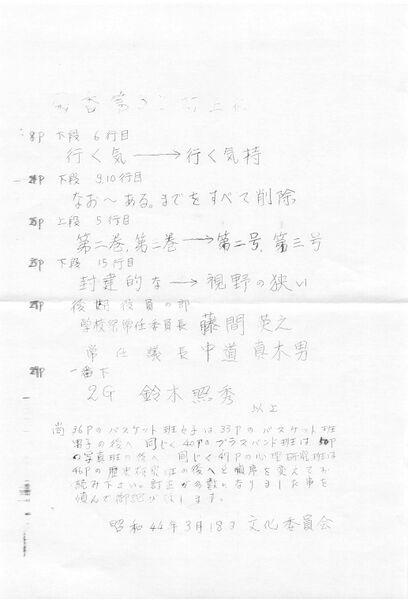 8P 下段 6行目
行く気 ──→ 行く気持
下段 9.10行目
なお〜ある。までをすべて削除
上段 5行目
第二巻,第三巻 ──→ 第二号,第三号
下段 15行目
封建的な ──→ 視野の狭い
後期役員の部
学校常任委員長 藤間英之
常任議長 中道真木男
一番下
2G 鈴木照秀
以上
尚 36Pのバスケット班女子は33Pのバスケット班
男子の後へ 同じく40Pのブラスバンド班は
の写真班の後へ 同じく47Pの心理研究班は
46Pの歴史研究班の後へと順序を変えてお
読み下さい。訂正が多数になりました事を
慎んで御詫び致します。
昭和44年3月18日 文化委員会